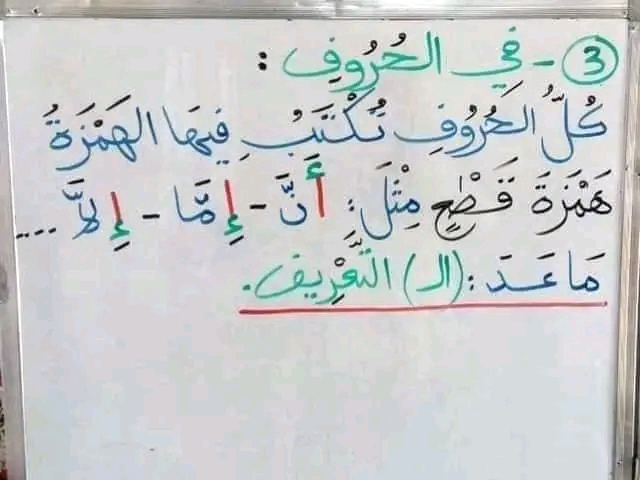 3 - في الحُرُوفِ :
كُلُّ الحُرُوفِ تُكْتَبُ فِيهَا الهَمْزَةُ
هَمْزَةَ قَطْعٍ مِثْلَ : أَنَّ - إِمَّا - إِلاَّ ...
مَا عَدَ : (الـ) التَّعْرِيفِ .